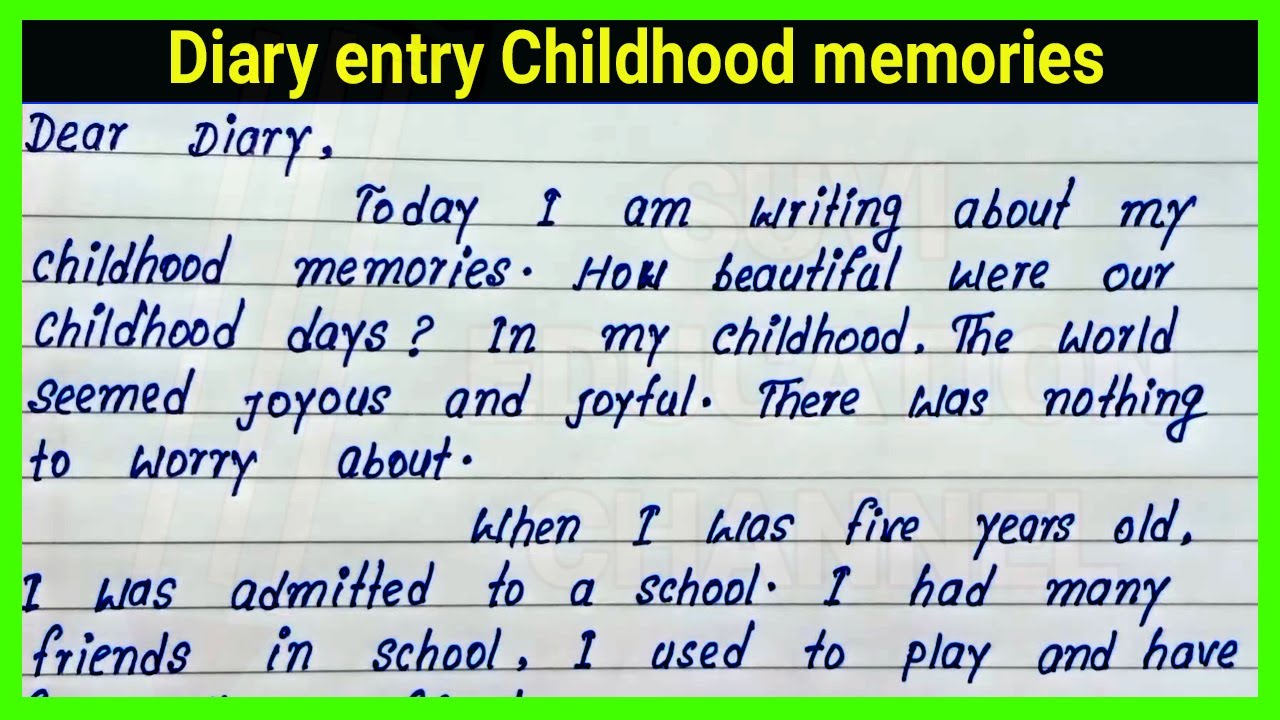 Diary entry Childhood memories
Dear Diary,
Today I am writing about my
childhood memories. How beautiful were our
childhood days? In my childhood. The world
seemed joyous and joyful. There was nothing
to worry about.
When I was five years old,
I was admitted to a school. I had many
friends in school, I used to play and have
SUVI
EDUCATION
CHANNEL